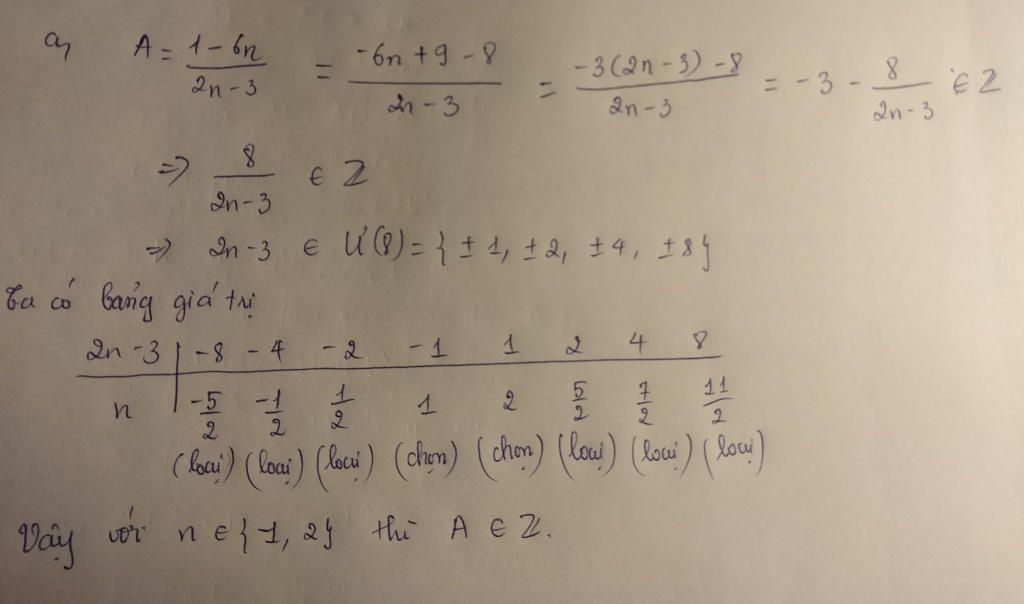 a, A = 1 - 6n / 2n - 3 = -6n + 9 - 8 / 2n - 3 = -3(2n - 3) - 8 / 2n - 3 = -3 - 8 / 2n - 3 ∈ Z
=> 8 / 2n - 3 ∈ Z
=> 2n - 3 ∈ Ư(8) = { ± 1, ± 2, ± 4, ± 8 }
Ta có bảng giá trị
2n - 3 | -8 -4 -2 -1 1 2 4 8
n | -5/2 -1/2 1/2 1 2 5/2 7/2 11/2
(loại) (loại) (loại) (chọn) (chọn) (loại) (loại) (loại)
Vậy với n ∈ { 1, 2 } thì A ∈ Z.